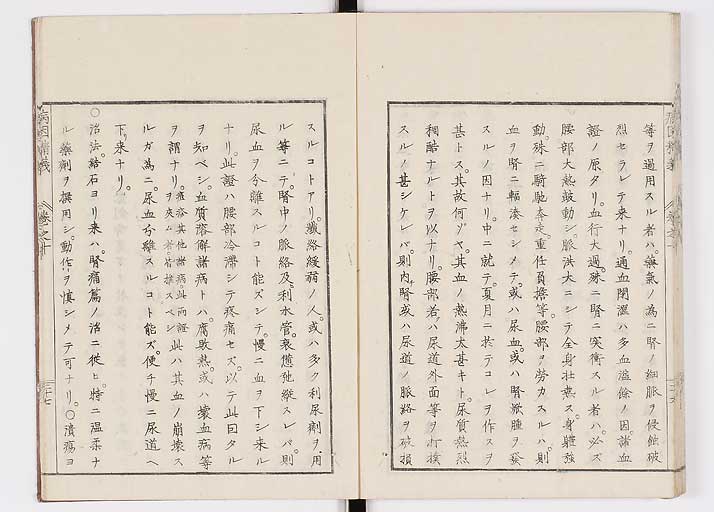 等ヲ過用スル者ハ。藥氣ノ為ニ腎ノ細脈ヲ侵蝕破
烈セラレテ来ナリ。通血閉濕ハ多血溢餘ノ因。諸血
證ノ原タリ。血行大過。殊ニ腎ニ突衝スル者ハ。必ズ
腰部大熱鼓動シ。脈洪大ニシテ全身壮熱ス。身軀強
動。殊ニ騎馳奔走。重任負擔等。腰部ヲ労力スルハ。則
血ヲ腎ニ輻湊セシメテ。或ハ尿血。或ハ腎焮腫ヲ發
スルノ因ナリ。中ニ就テ。夏月ニ於テコレヲ作スヲ
甚トス。其故何ゾヤ。其血ノ熱沸太甚キト。尿質熱烈
稠酷ナルトヲ以ナリ。腰部若ハ尿道外面等ヲ打撲
スルノ甚シケレバ。則内腎或ハ尿道ノ脈絡ヲ破損
スルコトアリ。纖絡緩弱ノ人。或ハ多ク利尿劑ヲ用
ル等ニテ。腎中ノ脈絡及利水管。衰憊弛縱スレバ。則
尿血ヲ分離スルコト能ズシテ。慢ニ血ヲ下シ来ル
ナリ。此證ハ腰部冷滯シテ疼痛セズ。以テ此因タル
ヲ知ベシ。血質溶解諸病トハ。腐敗熱。或ハ壊血病等
ヲ謂ナリ。
ヲ夾ム者皆擯スベシ此ハ其血ノ崩壊ス
ルガ為ニ。尿血分離スルコト能ズ。便チ慢ニ尿道ヘ
下。来ナリ。
○治法。結石ヨリ来ハ。腎痛篇ノ治ニ從ヒ。特ニ温柔ナ
ル藥劑ヲ撰用シ。動作ヲ慎シメテ可ナリ。○潰瘍ヨ
病因精義
卷之十
三十七